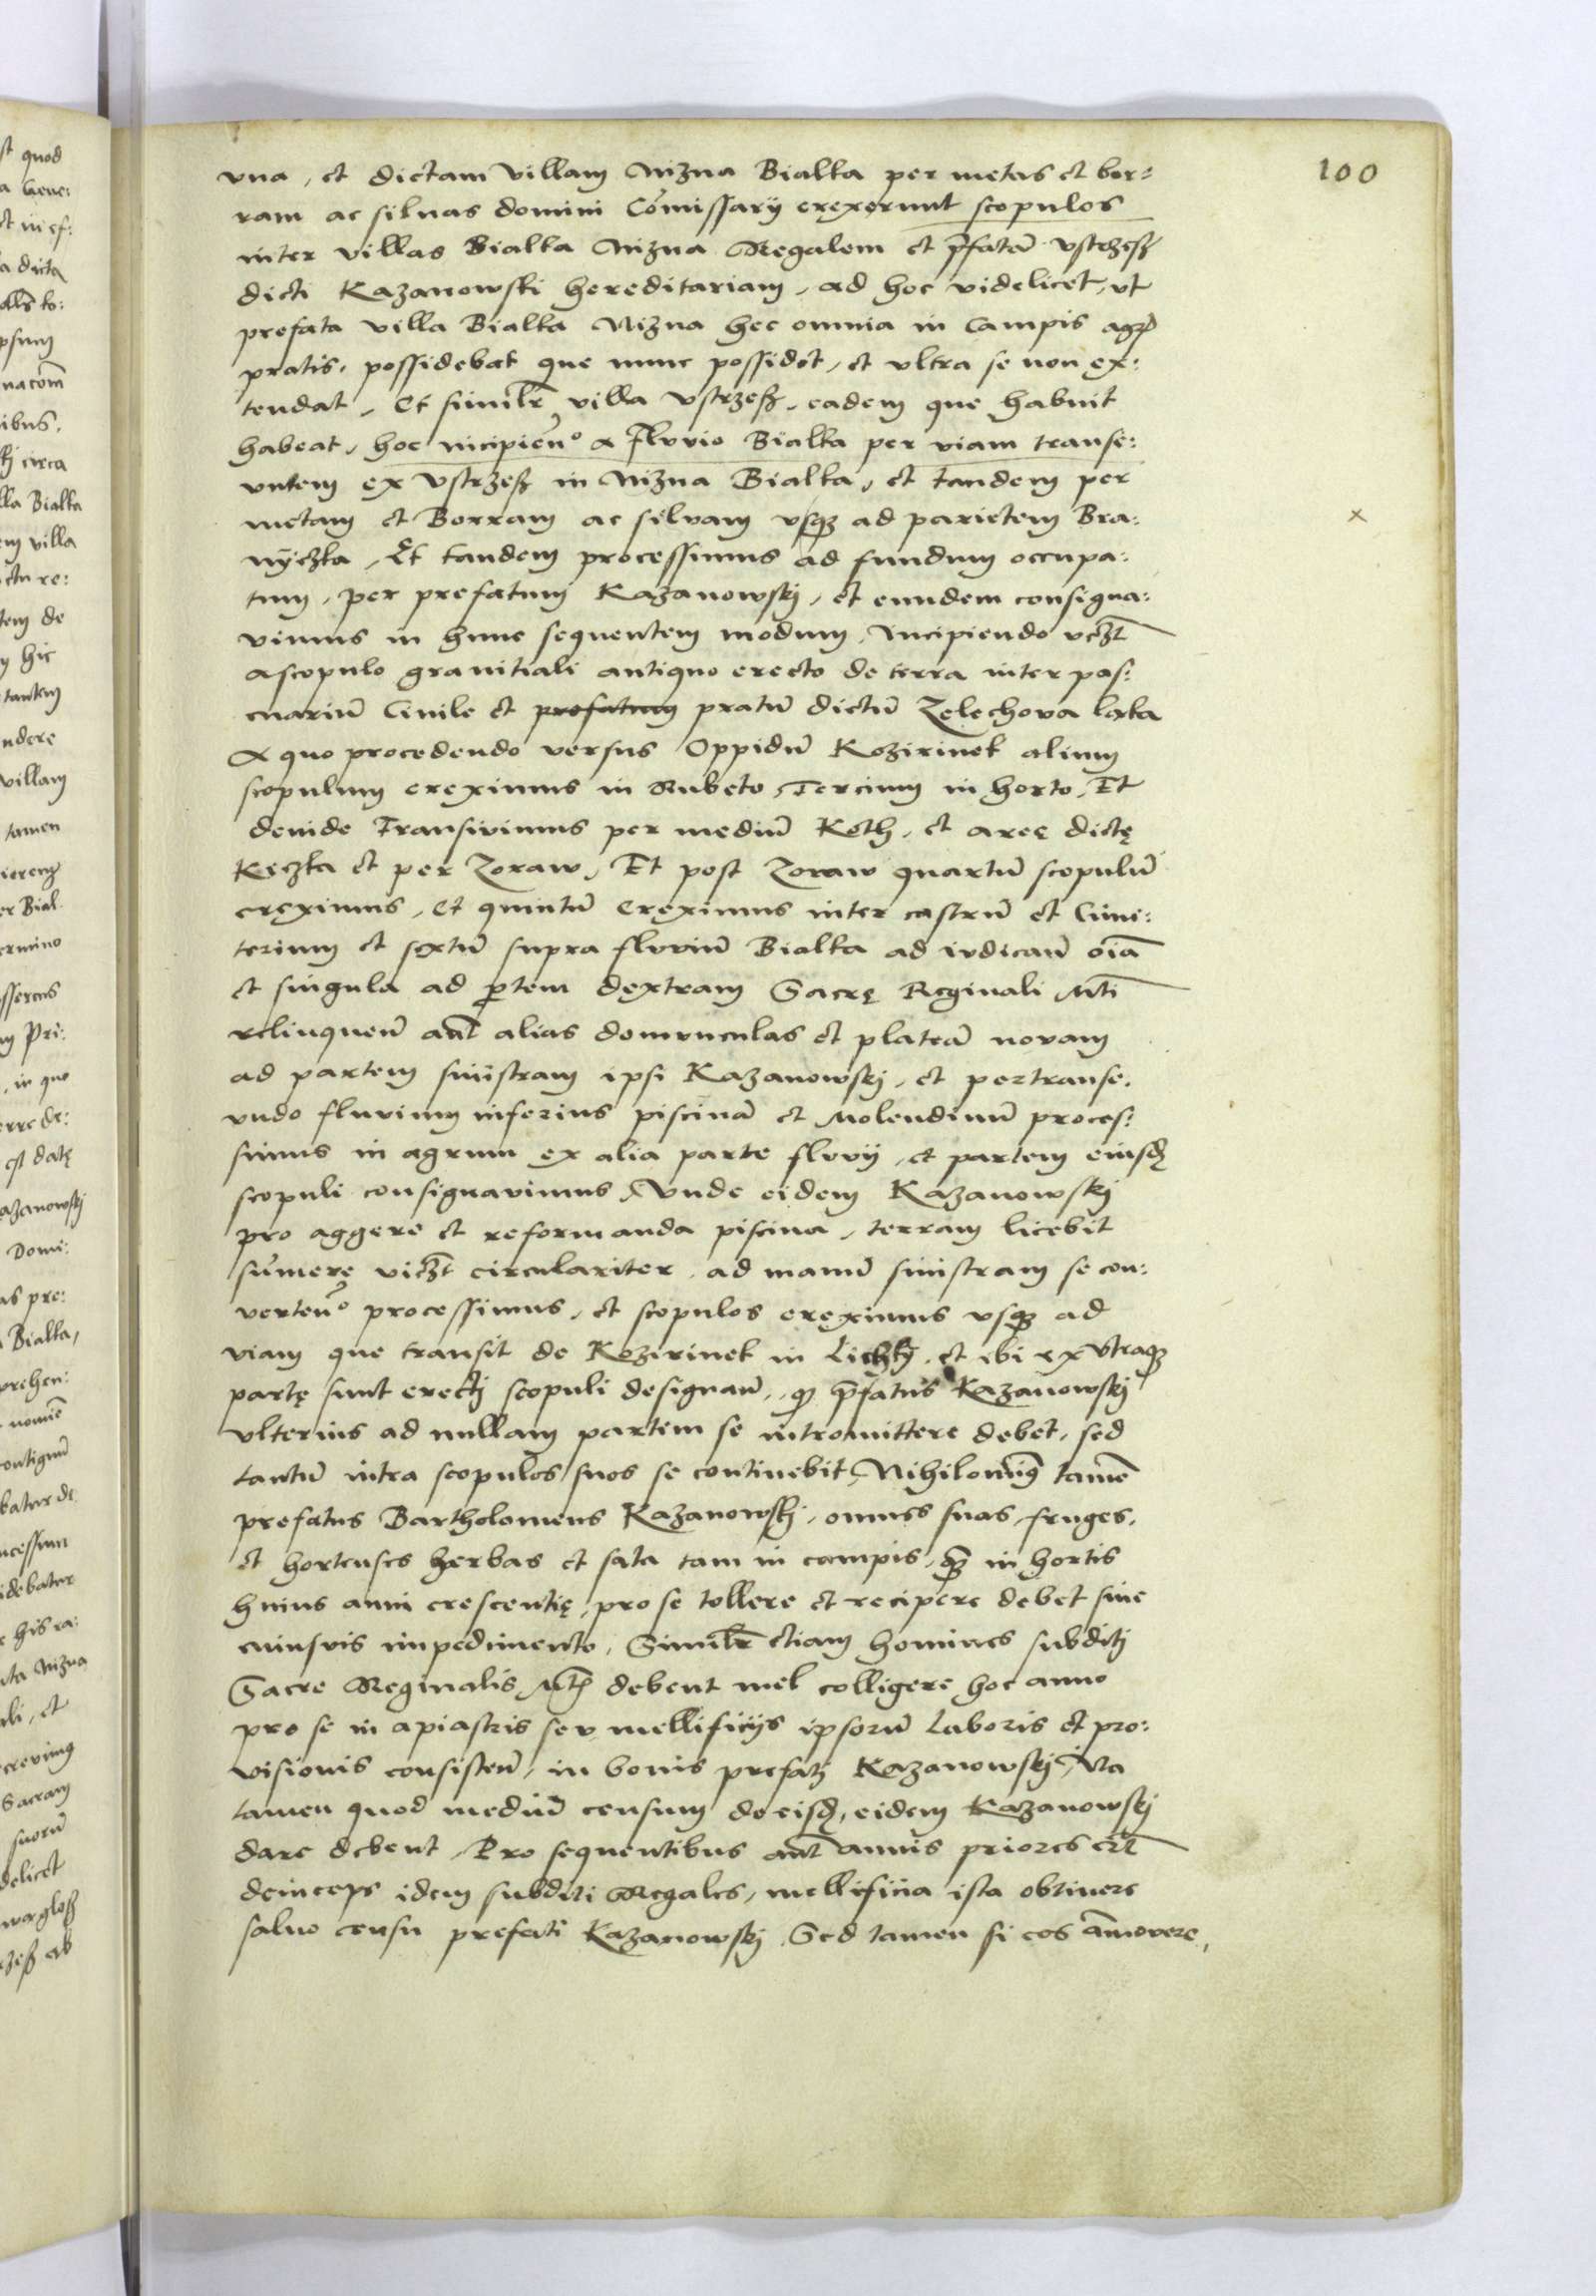 100
vna, et dictam villam Nizna Bialka per metas et bor:
ram ac siluas domini Cōmissarij erexerunt scopulos
inter villas Bialka Nizna Regalem et p̄fatā Vstrzeß
dicti Kazanowski hereditariam, ad hoc videlicet, vt
prefata villa Bialka Nizna hec omnia in Campis agr̄
pratis, possidebat que nunc possidet, et vltra se non ex:
tendat, Et simil̄r villa Vstrzeß, eadem que habuit
habeat, hoc incipien̄o a fluvio Bialka per viam transe:
untem ex Vstrzeß in Nizna Bialka, et tandem per
metam et Borram ac silvam vsq3 ad parietem Bra:
nÿczka, Et tandem processimus ad fundum occupa:
tum, per prefatum Kazanowskj, et eundem consigna:
vimus in hunc sequentem modum, Incipiendo vcz̄t
a scopulo granitiali antiquo erecto de terra inter pas:
cuariū Civile et prefatum pratū dictū Zelechova laka
A quo procedendo versus Oppidū Kozirinek alium
scopulum ereximus in Rubeto, Tercium in horto, Et
deinde Transivimus per mediū Keth, et areę dictę
Keczka et per Zoraw, Et post Zoraw quartū scopulū
ereximus, et quintū Ereximus inter castrū et Cimi:
terium et sextū supra fluviū Bialka ad iudicanū oīa
et singula ad p̱tem dextram Sacrę Reginali Mt̄i
relinquenū aūt alias domunculas et plateā novam
ad partem sinistram ipsi Kazanowskj, et pertranse:
undo fluvium inferius piscinā et Molendinū proces:
simus in agrum ex alia parte fluvij, et partem eiusd
scopuli consignavimus, Vnde eidem Kazanowskj
pro aggere et reformanda piscina, terram licebit
sumere vicz̄t circulariter, ad manū sinistram se con:
verten̄o processimus, et scopulos ereximus vsq3 ad
viam que transit de Kozirinek in Liczky, et ibi ex vtraq3
partę sunt erectj scopuli designanū, q̄ p̄fatus Kazanowskj
vlterius ad nullam partem se intromittere debet, sed
tantū intra scopulos suos se continebit, Nihilomin9 tamē
prefatus Bartholomeus Kazanowskj, omnes suas fruges,
et hortenses herbas et sata tam in campis, q̄3 in hortis
huius anni crescentię, pro se tollere et recipere debet sine
cuiusvis impedimento, Simil̄r etiam homines subditj
Sacre Reginalis Mt̄j debent mel colligere hoc anno
pro se in apiastris seu mellificijs ipsorū laboris et pro:
visionis consistenū, in bonis prefatj Kazanowskj, Ita
tamen quod mediū censum de eisd, eidem Kazanowskj
dare debent, Pro sequentibus aūt annis priores er̄t
deinceps idem subditi Regales, mellificia ista obtinere
salvo censu prefati Kazanowskj, Sed tamen si eos am̄overe,